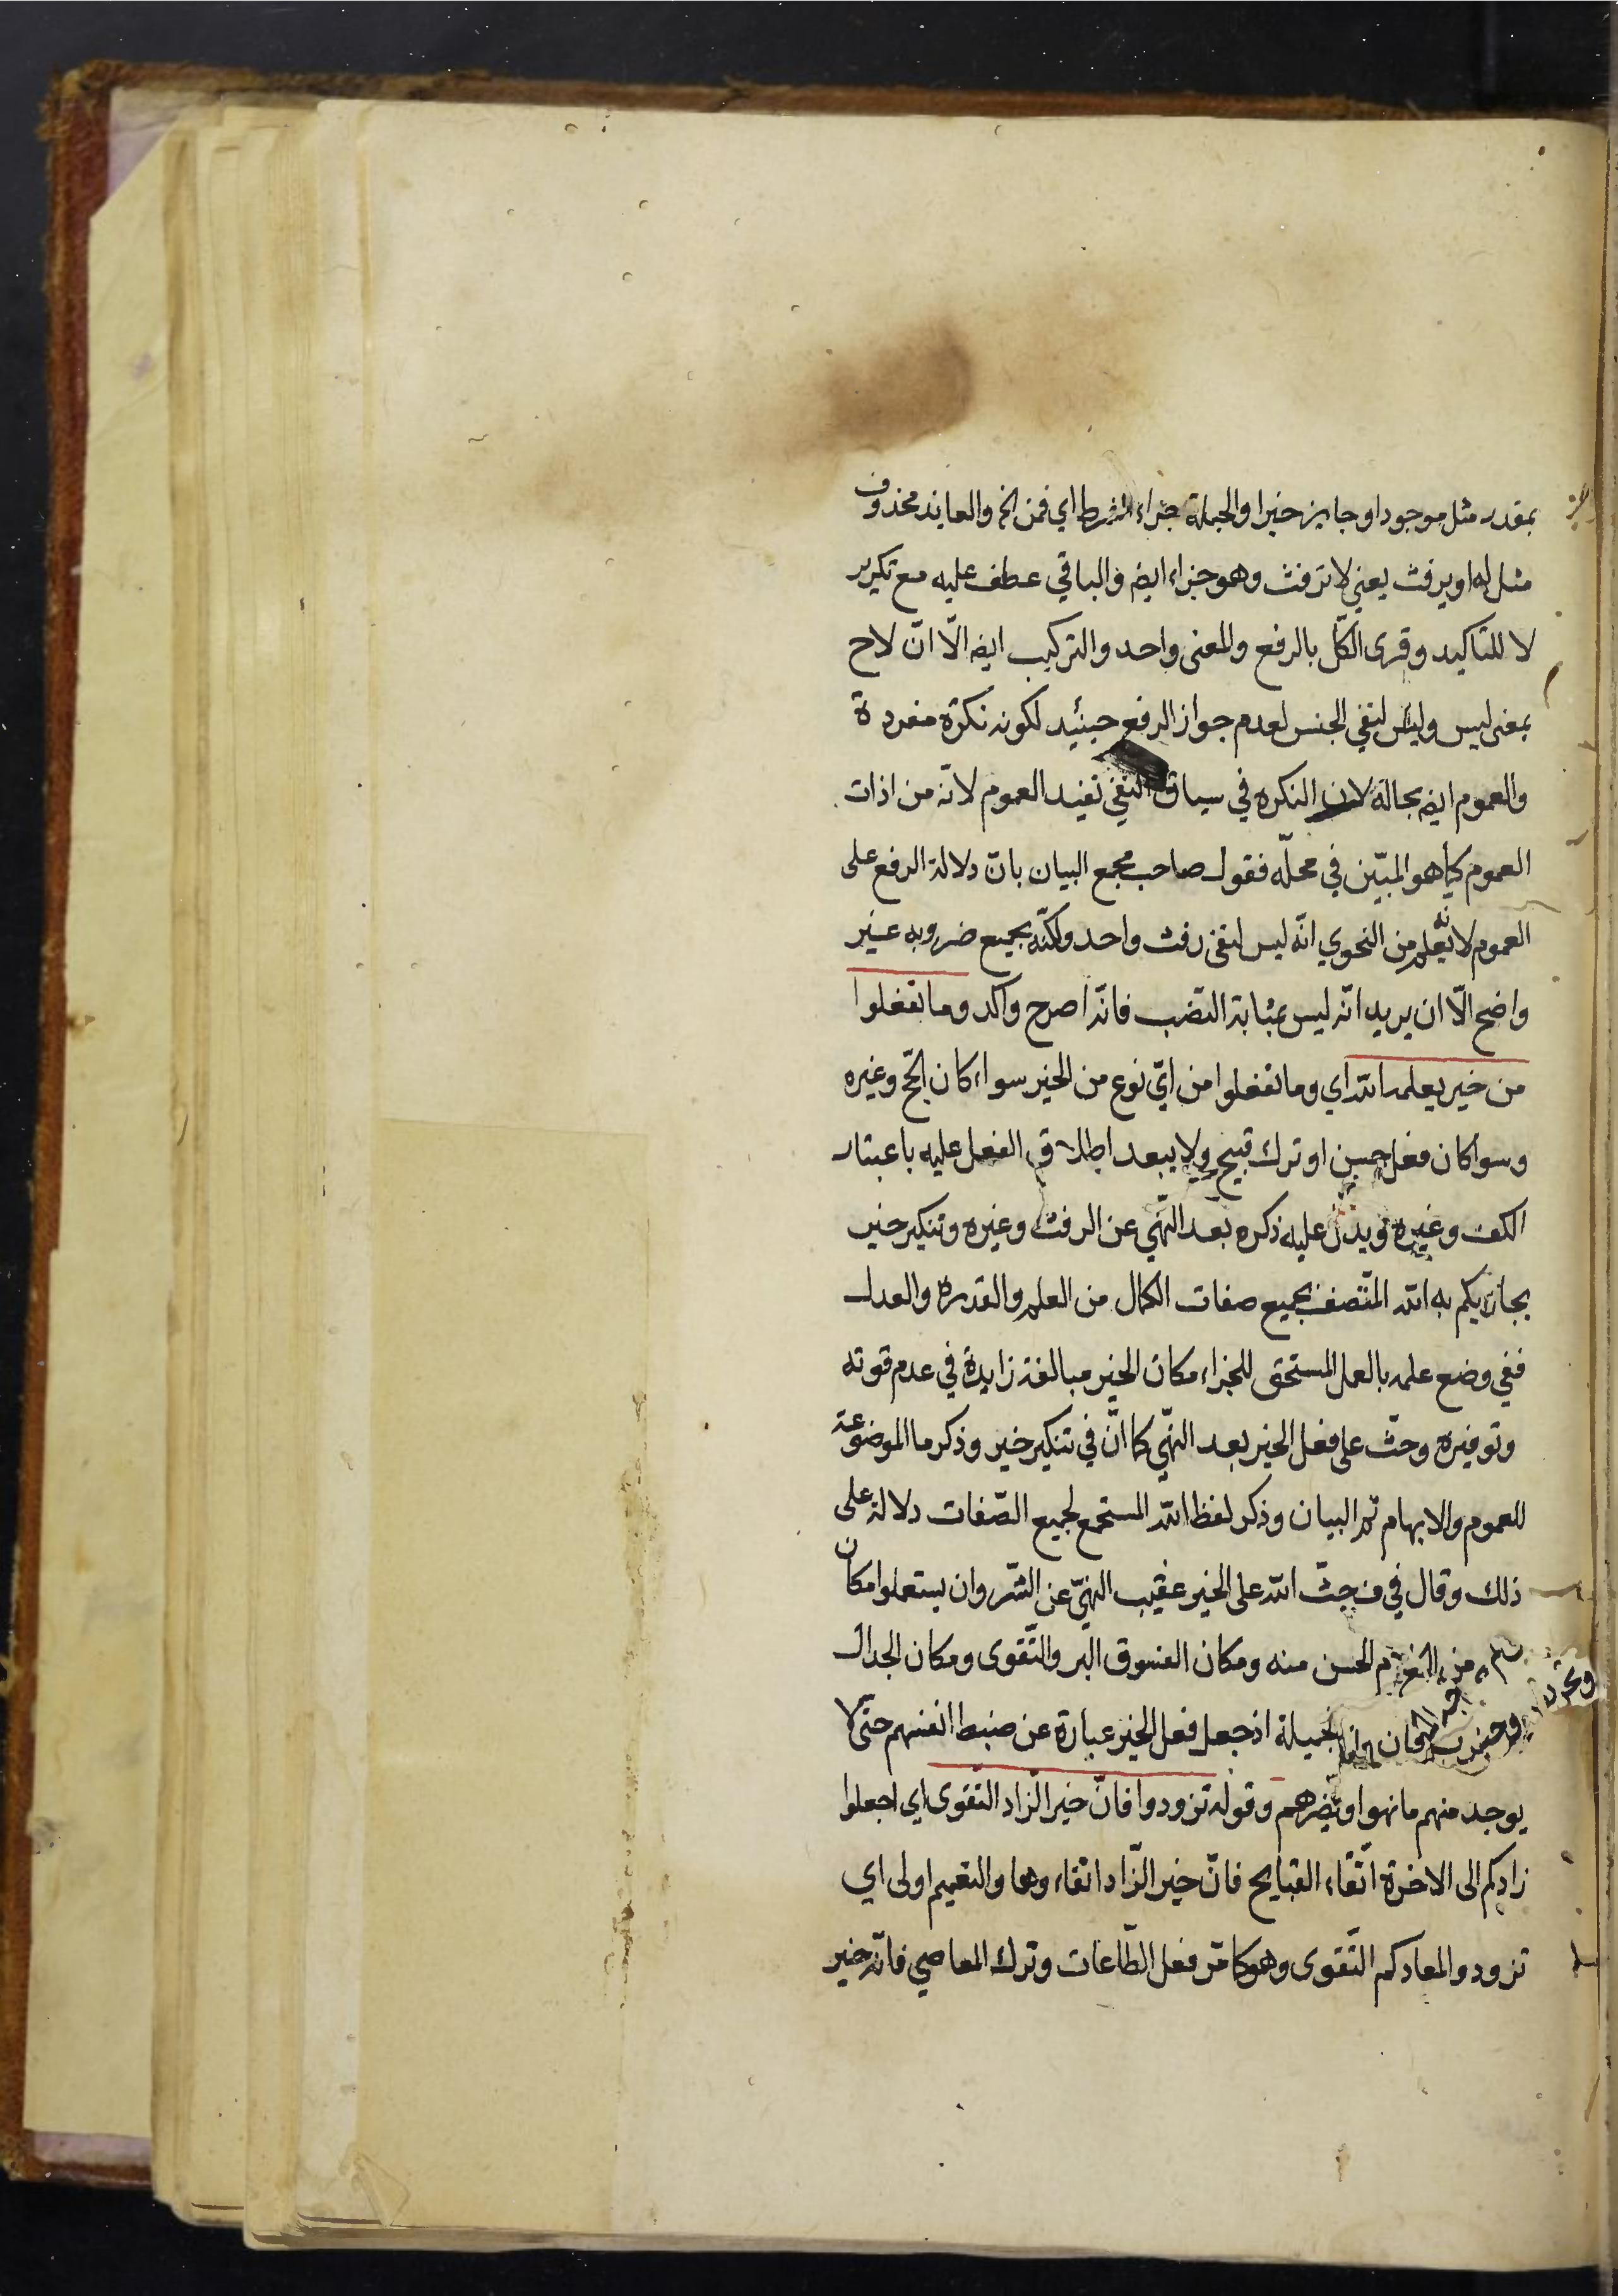 بمقدر مثل موجودا وجايز خبرا والجملة جزاء الشرط اي فمن الخ والعايد محذوف
مثل له اويرفث يعني لا ترفث وهو جزاء ايضا والباقي عطف عليه مع تكرير
لا للتاكيد وقرى الكلّ بالرفع والمعنى واحد والتركيب ايضا الّا انّ لا ح
بمعنى ليس وليس لنفي الجنس لعدم جواز الرفع حينئيد لكونه نكرة مفردة
والعموم ايضا بحاله لان النكره في سياق النفي تفيد العموم لانّه من اذات
العموم كما هو المبيّن في محلّه فقول صاحب مجمع البيان بانّ دلالة الرفع على
العموم لانه يعلم من النحوي انّه ليس لنفى رفث واحد ولكنّه بجميع ضروبه غير
واضح الّا ان يريد انّه ليس بمثابة النّصب فانّه اصرح واكد وما تفعلوا
من خير يعلمه الله اي وما تفعلوا من ايّ نوع من الخير سواء كان الحجّ وغيره
وسواكان فعل حسن او ترك قبيح ولا يبعد اطلاق الفعل عليه باعتبار
الكف وغيره ويدلّ عليه ذكره بعد النّهي عن الرفث وغيره وتنكير خير
يجازيكم به الله المتّصف بجميع صفات الكمال من العلم والقدرة والعدل
ففي وضع علمه بالعمل المستحق للجزاء مكان الخير مبالغة زايدة في عدم فوته
وتوفيره وحثّ على فعل الخير بعد النّهي كما انّ في تنكير خير وذكر ما الموضوعة
للعموم والابهام ثم البيان وذكر لفظ الله المستجمع لجميع الصّفات دلالة على
ذلك وقال في ف حثّ الله على الخير عقيب النهيّ عن الشّر وان يستعملوا مكان
الحسن منه ومكان الفسوق البر والتّقوى ومكان الجدال
الجميلة اذجعل فعل الخير عبارة عن ضبط انفسهم حتّى لا
يوجد منهم ما نهوا وقوله تزودوا فانّ خير الزّاد التّقوى اى اجعلوا
زادكم الى الاخرة اتّقاء القبايح فانّ خير الزّاد اتقاء وها والتعميم اولى اي
تزودوا لمعادكم التّقوى وهو كامّر فعل الطّاعات وترك المعاصي فانّه خير